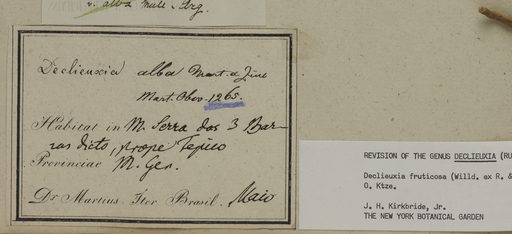 v. alba Mull. Arg.
Declieuxia alba Mart. & Zucc
Mart. Obs. 1265.
Habitat in M. Serra dos 3 Bar-
ras dicto, prope Tejuco
Provinciae M. Ger.
Dr Martius Iter Brasil. Maio
REVISION OF THE GENUS DECLIEUXIA (RU
Declieuxia fruticosa (Willd. ex R. &
O. Ktze.
J. H. Kirkbride, Jr.
THE NEW YORK BOTANICAL GARDEN